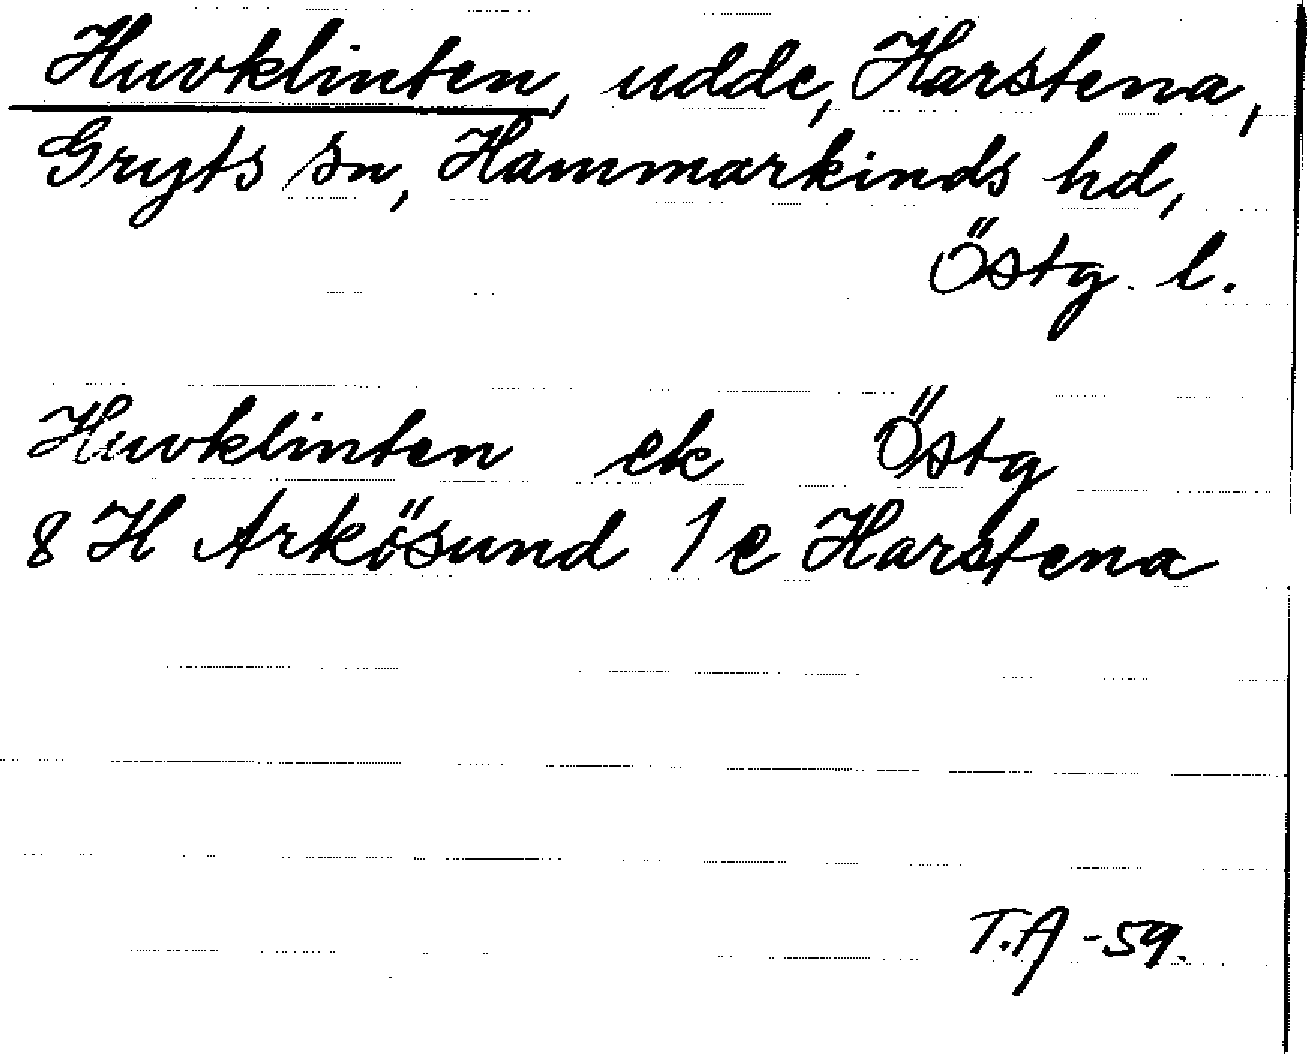 Huvklinten, udde, Harstena,
Gryts sn, Hammarkinds hd,
Östg. l.
Huvklinten ek Östg
8 H Arkösund 1 e Harstena
T.A -59.